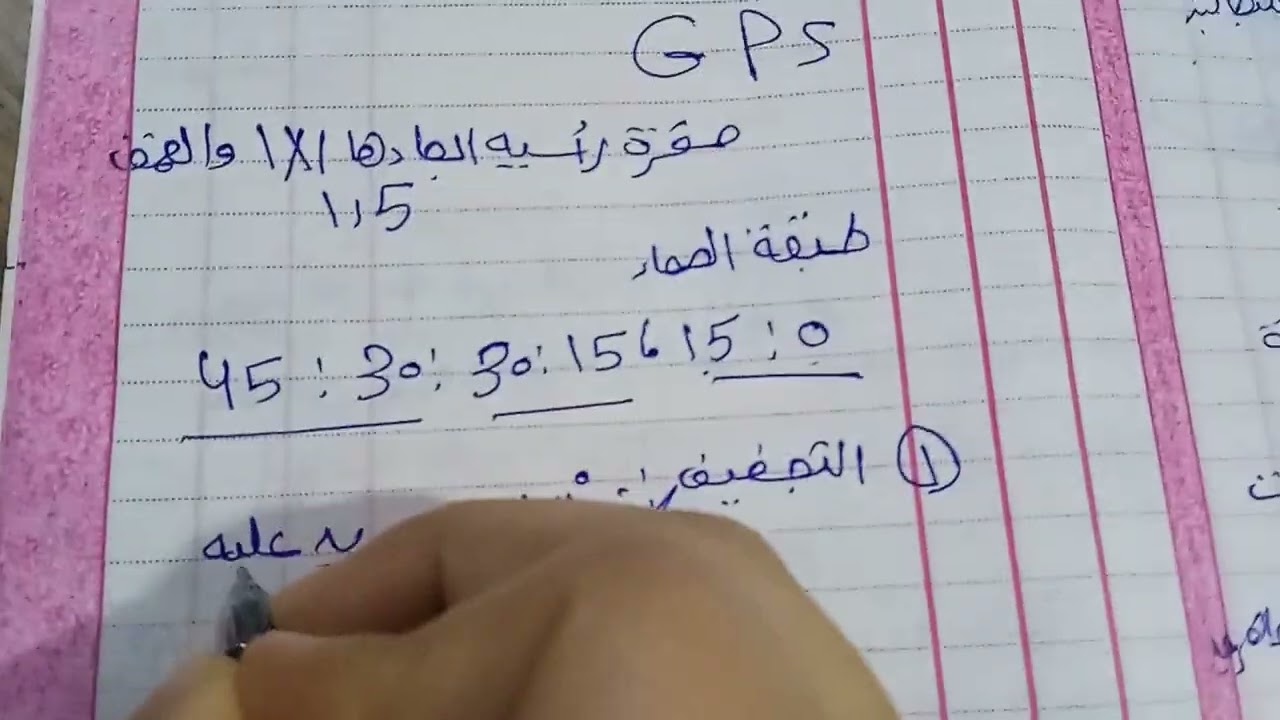 GPS
حفرة رئسيه ابعادها 1X1 والعمق
1,5
طبقة الصماد
45 : 30 : 30 : 15 6 15 : 0
① التجفيف :
عليه